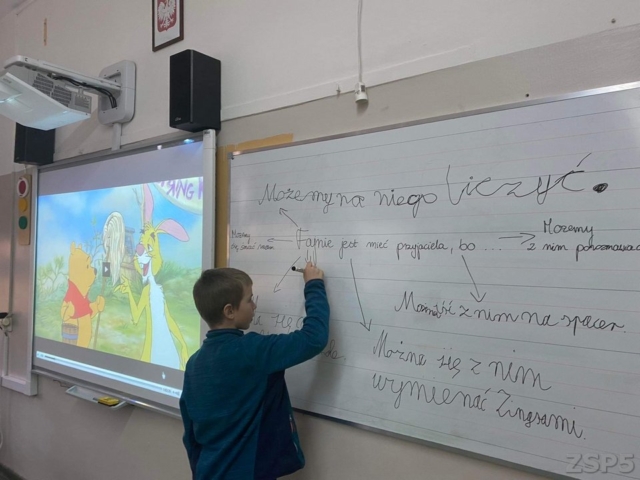 Możemy na niego liczyć.
Możemy
Fajnie jest mieć przyjaciela, bo ...
Możemy
z nim porozmawiać
się
Można iść z nim na spacer.
Można się z nim
wymieniać Zingsami.
ZSP5